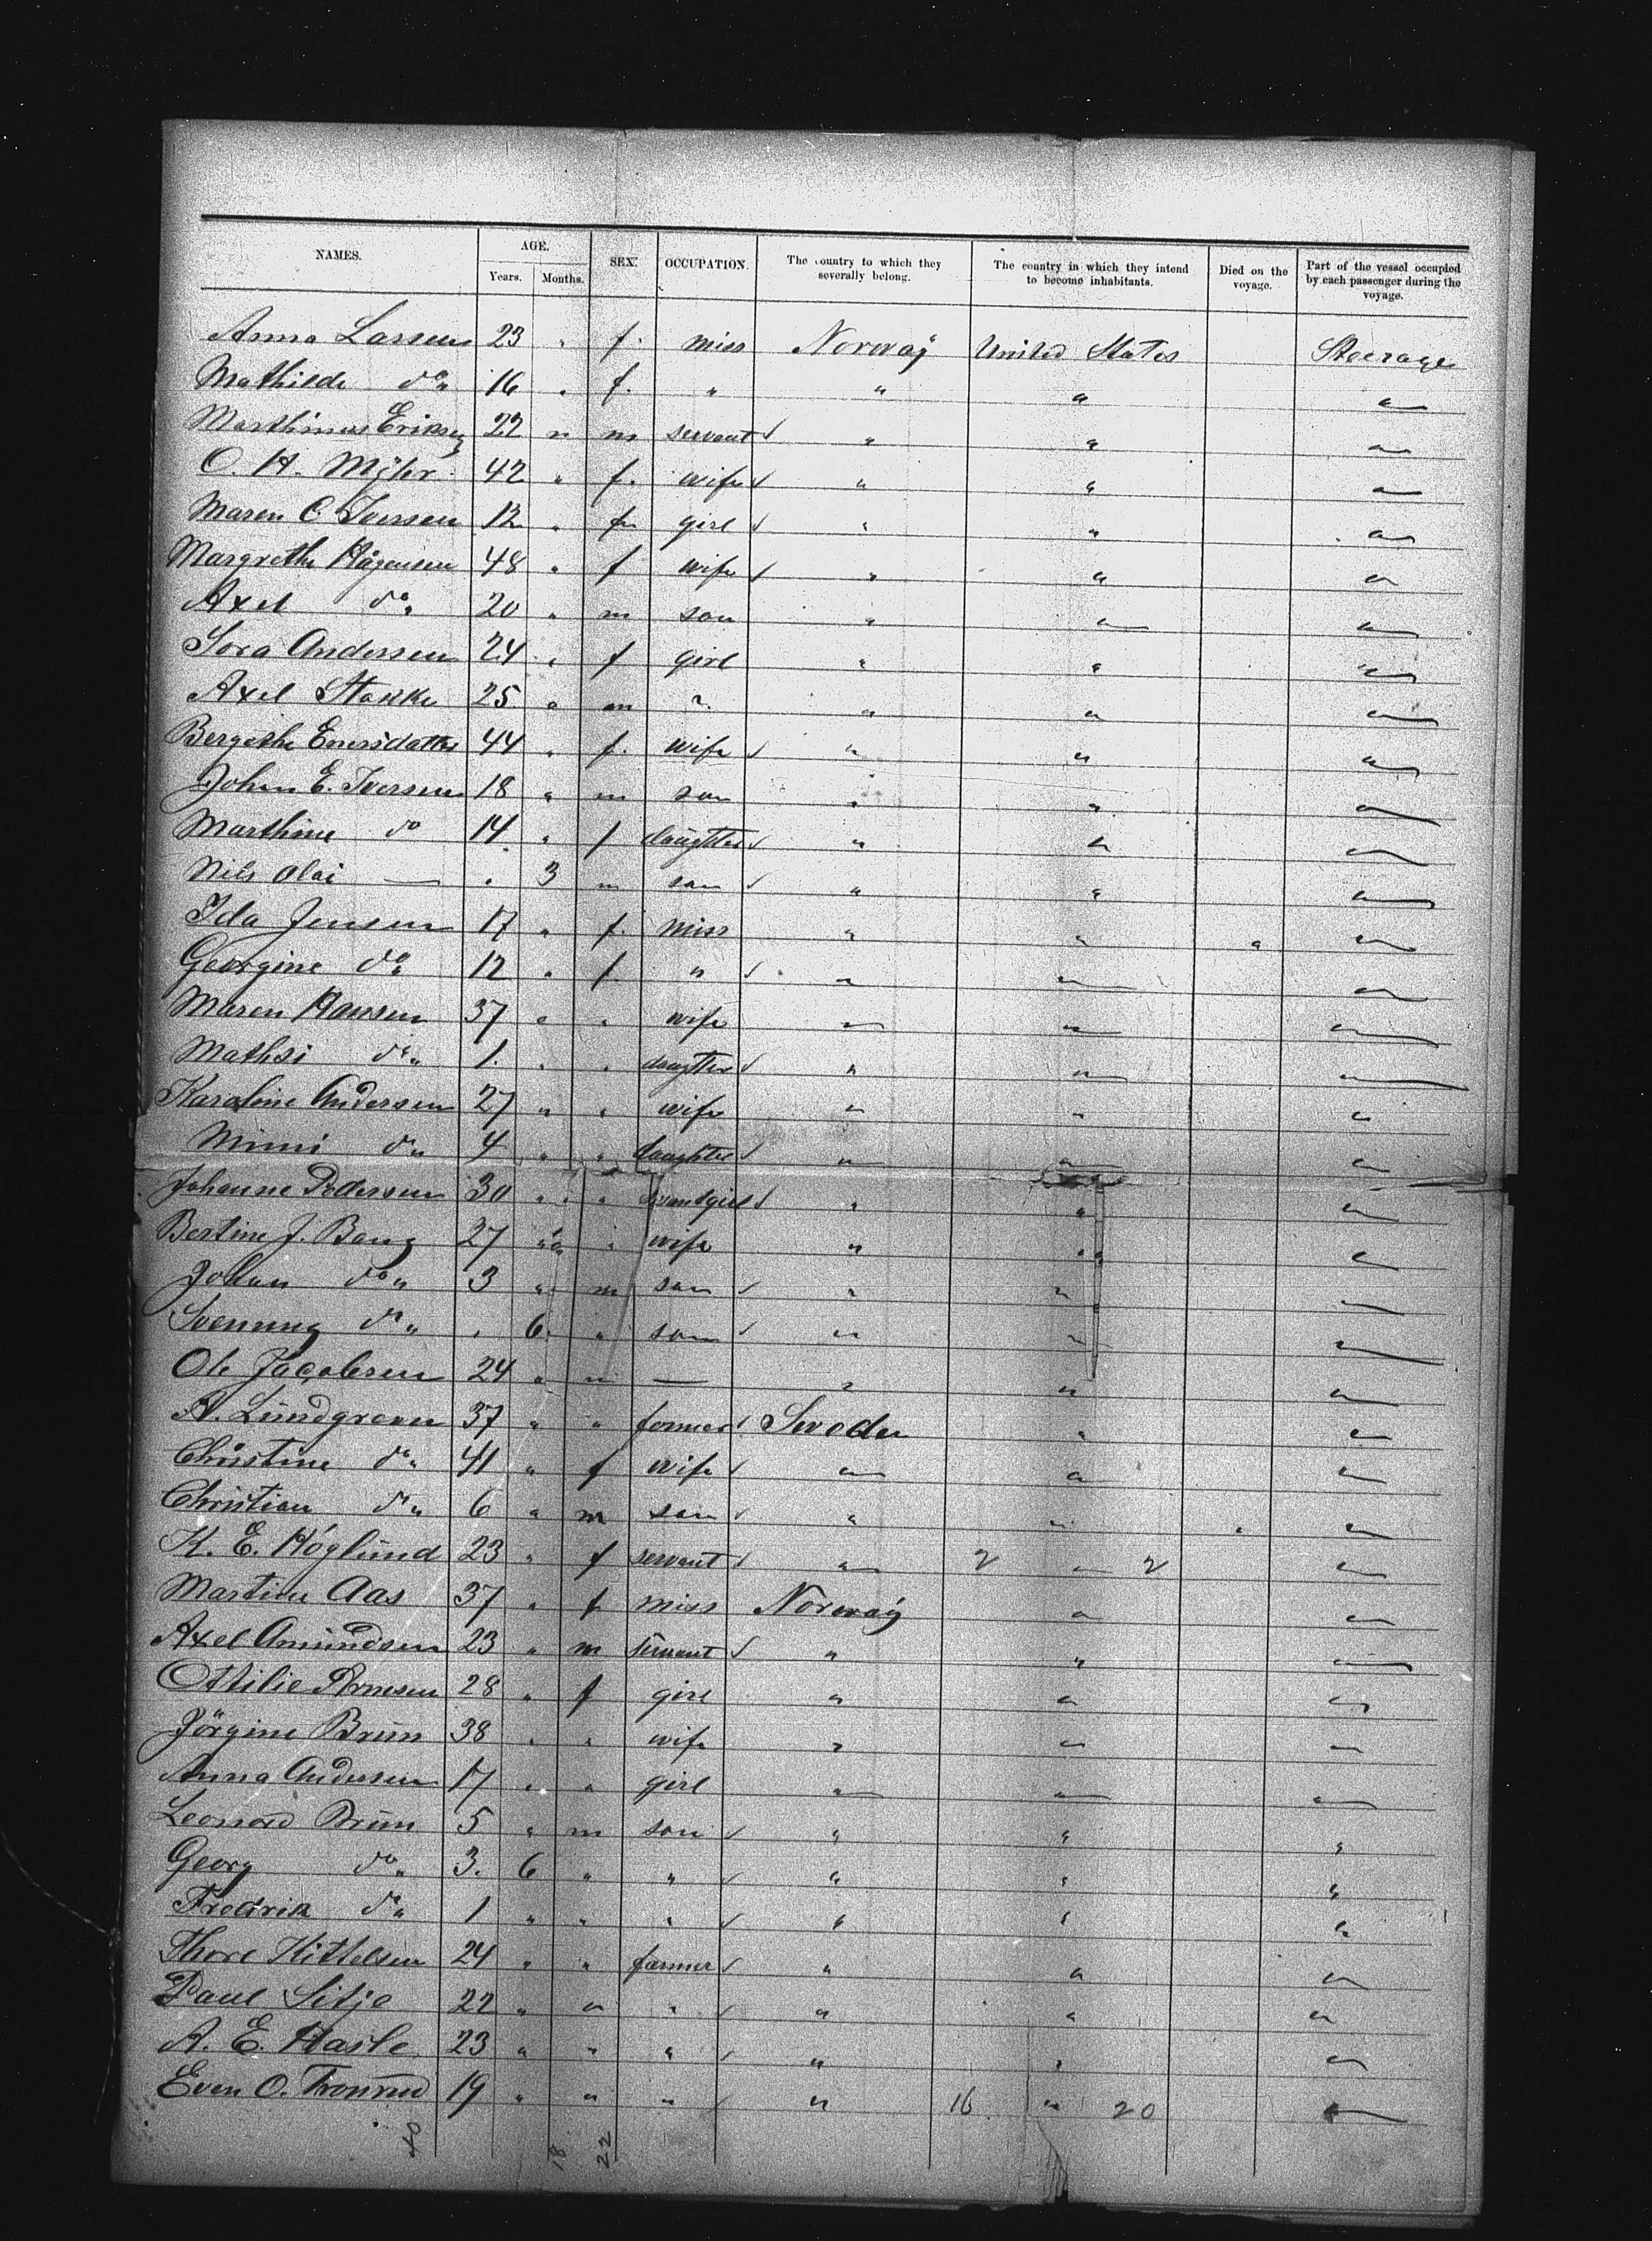 NAMES. AGE. SEX. OCCUPATION. The country to which they severally belong. The country in which they intend to become inhabitants. Died on the voyage. Part of the vessel occupied by each passenger during the voyage.
Years. Months.
Anna Larsen 23 " f. miss Norway United States Steerage
Mathilde do " 16 " f. " " " "
Marthinus Eriksen 22 " m servant " " "
O. H. Myhr 42 " f. wife " " "
Maren C. Iversen 12 " f. girl " " "
Margrethe Hågensen 48 " f wife " " "
Axel do " 20 " m son " " "
Sora Andersen 24 " f girl " " "
Axel Stakke 25 " m " " " "
Bergethe Enersdatter 44 " f. wife " " "
Johan E. Iversen 18 " m son " " "
Marthine do 14 " f daughter " " "
Nils Olai — " 3 m son " " "
Ida Jensen 17 " f. miss " " " "
Georgine do " 12 " f " " " "
Maren Hansen 37 " " wife " " "
Mathsi do " 1. " " daugther " " "
Karoline Andersen 27 " " wife " " "
Minni do " 4 " " daughter " " "
Johanne Pettersen 30 " " servantgirl " " "
Bertine J. Bang 27 " " wife " " "
Johan do " 3 " m son " " "
Svenung do " " 6 " son " " "
Ole Jacobsen 24 " m — " " "
A. Lundgreen 37 " " farmer Sweden " "
Christine do " 41 " f wife " " "
Christian do " 6 " m son " " "
K. E. Höglund 23 " f servant " 2 " 2 "
Martine Aas 37 " f miss Norway " "
Axel Amundsen 23 " m servant " " "
Ottilie Arnesen 28 " f girl " " "
Jörgine Brun 38 " " wife " " "
Anna Andersen 17 " " girl " " "
Leonard Brun 5 " m son " " "
Georg do " 3. 6 " " " " "
Fredrik do " 1 " " " " " "
Thore Kittelsen 24 " " farmer " " "
Paul Litje 22 " " " " " "
A. E. Hasle 23 " " " " " "
Even O. Tronrud 19 " " " " 16 " 20 "
40 18 22